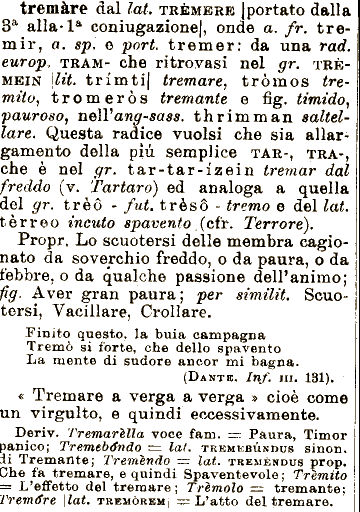 tremàre dal lat. TRÈMERE |portato dalla
3ª alla·1ª coniugazione|, onde a. fr. tre-
mir, a. sp. e port. tremer: da una rad.
europ. TRAM- che ritrovasi nel gr. TRÈ-
MEIN |lit. trímti| tremare, tròmos tre-
mito, tromeròs tremante e fig. timido,
pauroso, nell'ang-sass. thrimman saltel-
lare. Questa radice vuolsi che sia allar-
gamento della più semplice TAR-, TRA-,
che è nel gr. tar-tar-izein tremar dal
freddo (v. Tartaro) ed analoga a quella
del gr. trèô - fut. trèsô - tremo e del lat.
tèrreo incuto spavento (cfr. Terrore).
Propr. Lo scuotersi delle membra cagio-
nato da soverchio freddo, o da paura, o da
febbre, o da qualche passione dell'animo;
fig. Aver gran paura; per similit. Scuo-
tersi, Vacillare, Crollare.
Finito questo, la buia campagna
Tremò si forte, che dello spavento
La mente di sudore ancor mi bagna.
(DANTE. Inf. III. 131).
« Tremare a verga a verga » cioè come
un virgulto, e quindi eccessivamente.
Deriv. Tremarèlla voce fam. = Paura, Timor
panico; Tremebóndo = lat. TREMEBÚNDUS sinon.
di Tremante; Tremèndo = lat. TREMÈNDUS prop.
Che fa tremare, e quindi Spaventevole; Trèmito
= L'effetto del tremare; Trèmolo = tremante;
Tremóre |lat. TREMÒREM| = L'atto del tremare.